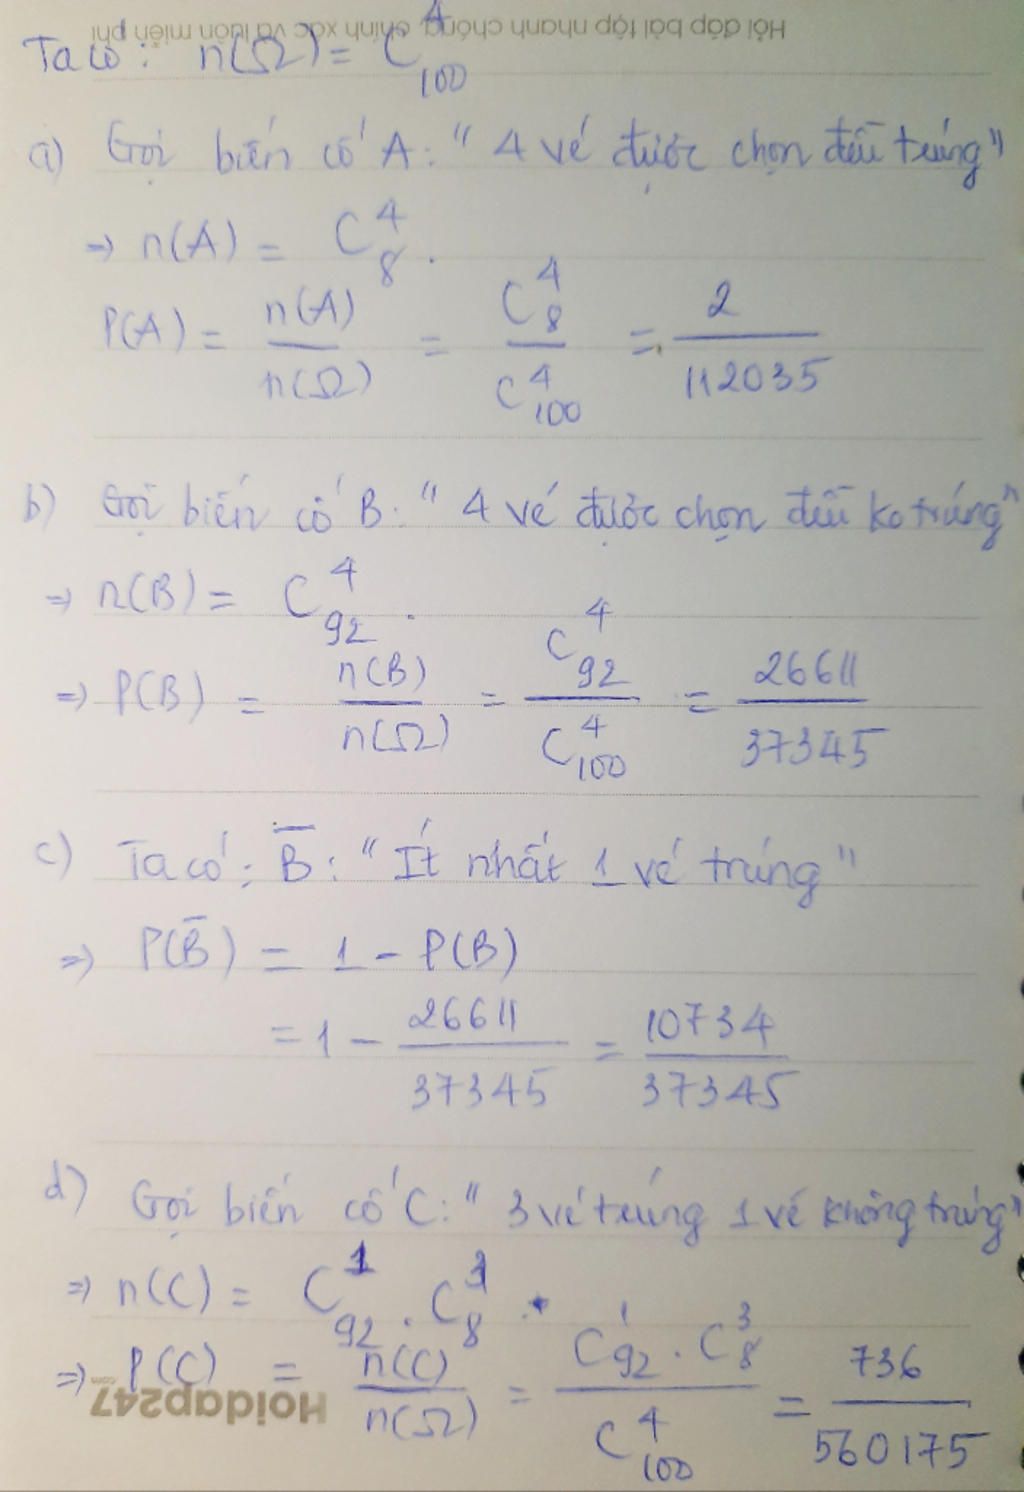 Hỏi đáp bài tập nhanh chóng, chính xác và luôn miễn phí
Ta có: n(Ω) = C⁴₁₀₀
a) Gọi biến cố A: “ 4 vé được chọn đều trúng”
=> n(A) = C⁴₈.
P(A) = n(A)/n(Ω) = C⁴₈/C⁴₁₀₀ = 2/112035
b) Gọi biến cố B: “ 4 vé được chọn đều ko trúng”
=> n(B) = C⁴₉₂.
=> P(B) = n(B)/n(Ω) = C⁴₉₂/C⁴₁₀₀ = 26611/37345
c) Ta có: B̅: “Ít nhất 1 vé trúng”
=> P(B̅) = 1 - P(B)
= 1 - 26611/37345 = 10734/37345
d) Gọi biến cố C: “ 3 vé trúng 1 vé không trúng”
=> n(C) = C¹₉₂ . C³₈ .
=> P(C) = n(C)/n(Ω) = C¹₉₂ . C³₈/C⁴₁₀₀ = 736/560175
Hoidap247.com